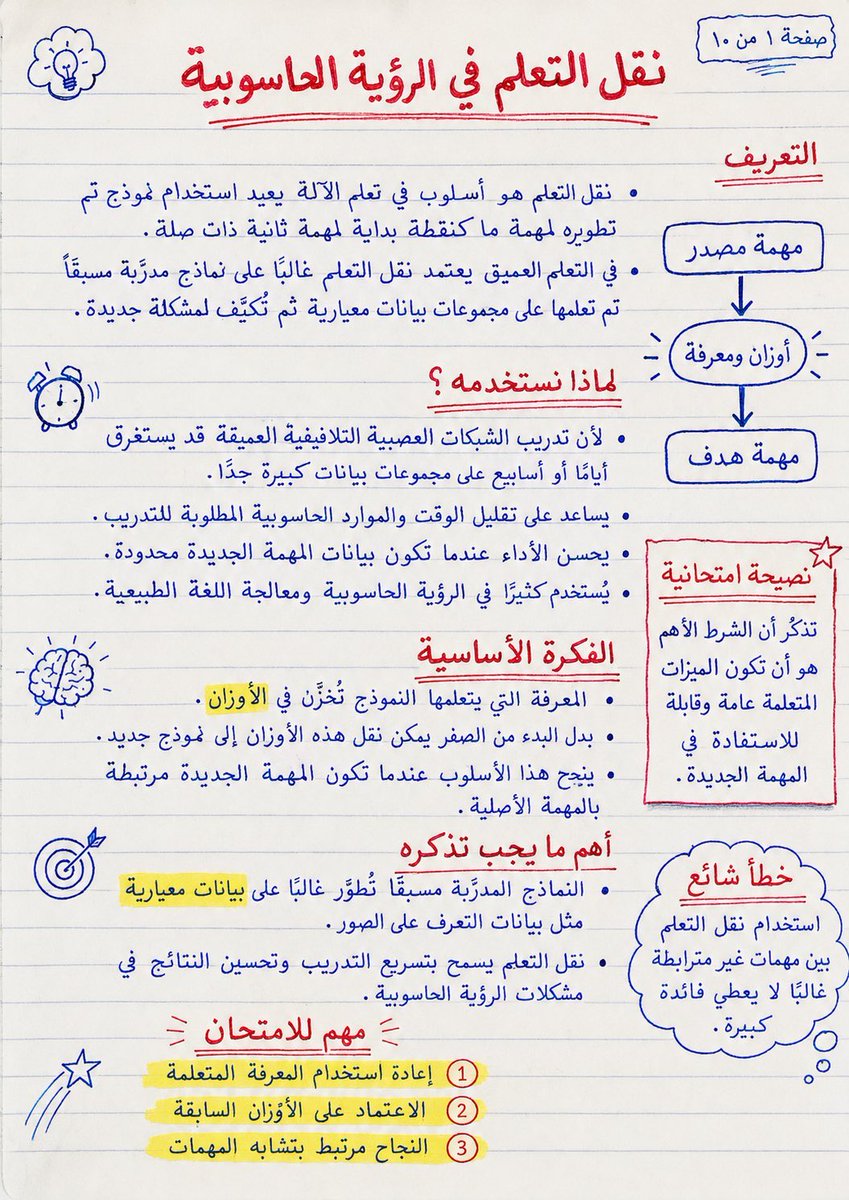 صفحة ١ من ١٠
نقل التعلم في الرؤية الحاسوبية
التعريف
• نقل التعلم هو أسلوب في تعلم الآلة يعيد استخدام نموذج تم
تطويره لمهمة ما كنقطة بداية لمهمة ثانية ذات صلة.
• في التعلم العميق يعتمد نقل التعلم غالبًا على نماذج مدرَّبة مسبقًاً
تم تعلمها على مجموعات بيانات معيارية ثم تُكيَّف لمشكلة جديدة.
مهمة مصدر
أوزان ومعرفة
مهمة هدف
لماذا نستخدمه؟
• لأن تدريب الشبكات العصبية التلافيفية العميقة قد يستغرق
أيامًا أو أسابيع على مجموعات بيانات كبيرة جدًا.
• يساعد على تقليل الوقت والموارد الحاسوبية المطلوبة للتدريب.
• يحسن الأداء عندما تكون بيانات المهمة الجديدة محدودة.
• يُستخدم كثيرًا في الرؤية الحاسوبية ومعالجة اللغة الطبيعية.
نصيحة امتحانية
تذكُر أن الشرط الأهم
هو أن تكون الميزات
المتعلمة عامة وقابلة
للاستفادة في
المهمة الجديدة.
الفكرة الأساسية
• المعرفة التي يتعلمها النموذج تُخزَّن في الأوزان.
• بدل البدء من الصفر يمكن نقل هذه الأوزان إلى نموذج جديد.
• ينجح هذا الأسلوب عندما تكون المهمة الجديدة مرتبطة
بالمهمة الأصلية.
أهم ما يجب تذكره
• النماذج المدرَّبة مسبقًا تُطوَّر غالبًا على بيانات معيارية
مثل بيانات التعرف على الصور.
• نقل التعلم يسمح بتسريع التدريب وتحسين النتائج في
مشكلات الرؤية الحاسوبية.
خطأ شائع
استخدام نقل التعلم
بين مهمات غير مترابطة
غالبًا لا يعطي فائدة
كبيرة.
مهم للامتحان
1 إعادة استخدام المعرفة المتعلمة
2 الاعتماد على الأوُزان السابقة
3 النجاح مرتبط بتشابه المهمات